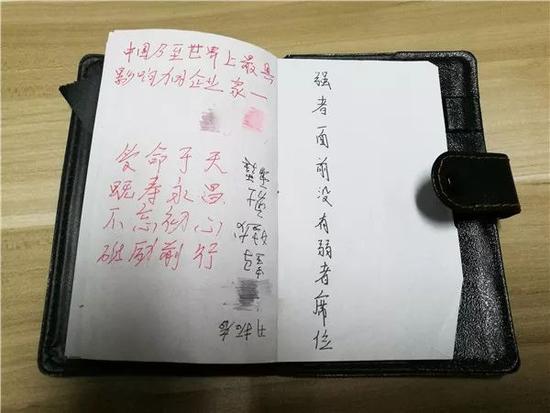 中国乃至世界上最具
影响力的企业家一
受命于天
既寿永昌
不忘初心
砥励前行
开拓者
强者面前没有弱者席位